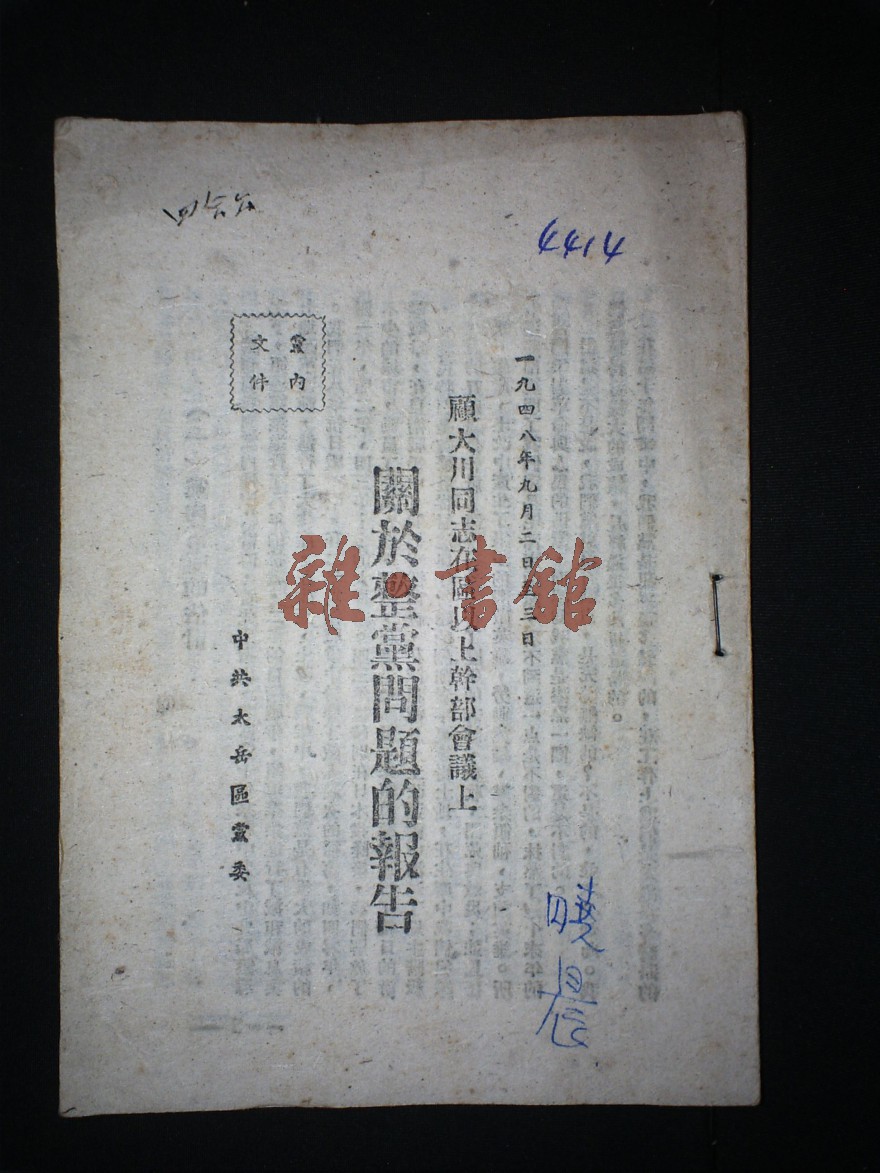 4414
一九四八年九月二日至三日
顧大川同志在區以上幹部會議上
關於整黨問題的報告
黨内
文件
中共太岳區黨委
曉晨
雜書館